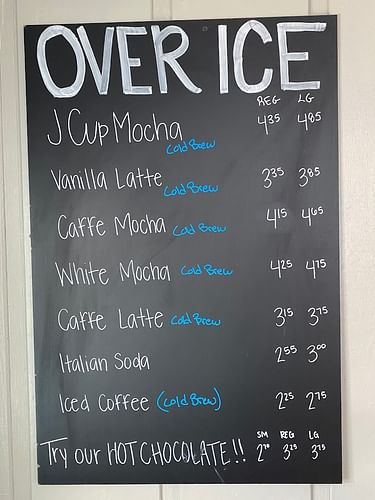 OVER ICE
REG LG
J Cup Mocha 4.35 4.85
Cold Brew
Vanilla Latte 3.35 3.85
Cold Brew
Caffe Mocha Cold Brew 4.15 4.65
White Mocha Cold Brew 4.25 4.75
Caffe Latte Cold Brew 3.15 3.75
Italian Soda 2.55 3.00
Iced Coffee (Cold Brew) 2.25 2.75
SM REG LG
Try our HOT CHOCOLATE!! 3.25 3.75